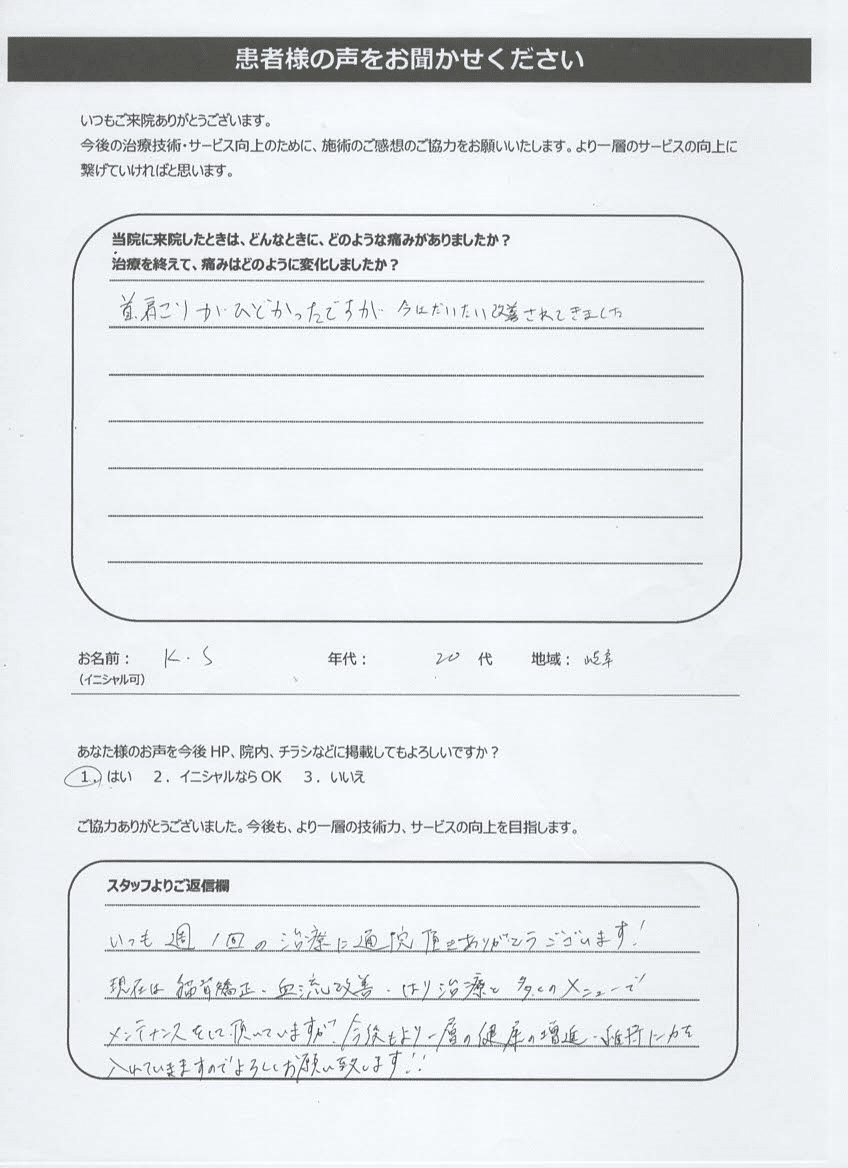 患者様の声をお聞かせください
いつもご来院ありがとうございます。
今後の治療技術・サービス向上のために、施術のご感想のご協力をお願いいたします。より一層のサービスの向上に
繋げていければと思います。
当院に来院したときは、どんなときに、どのような痛みがありましたか？
治療を終えて、痛みはどのように変化しましたか？
首肩こりがひどかったですが 今はだいたい改善されてきました
お名前： K.S 年代： 20 代 地域： 岐阜
（イニシャル可）
あなた様のお声を今後 HP、院内、チラシなどに掲載してもよろしいですか？
1. はい 2. イニシャルなら OK 3. いいえ
ご協力ありがとうございました。今後も、より一層の技術力、サービスの向上を目指します。
スタッフよりご返信欄
いつも週1回の治療に通院頂きありがとうございます!
現在は猫背矯正・血流改善・はり治療と多くのメニューで
メンテナンスをして頂いていますが、今後もより一層の健康の増進・維持に力を
入れていきますのでよろしくお願い致します!!